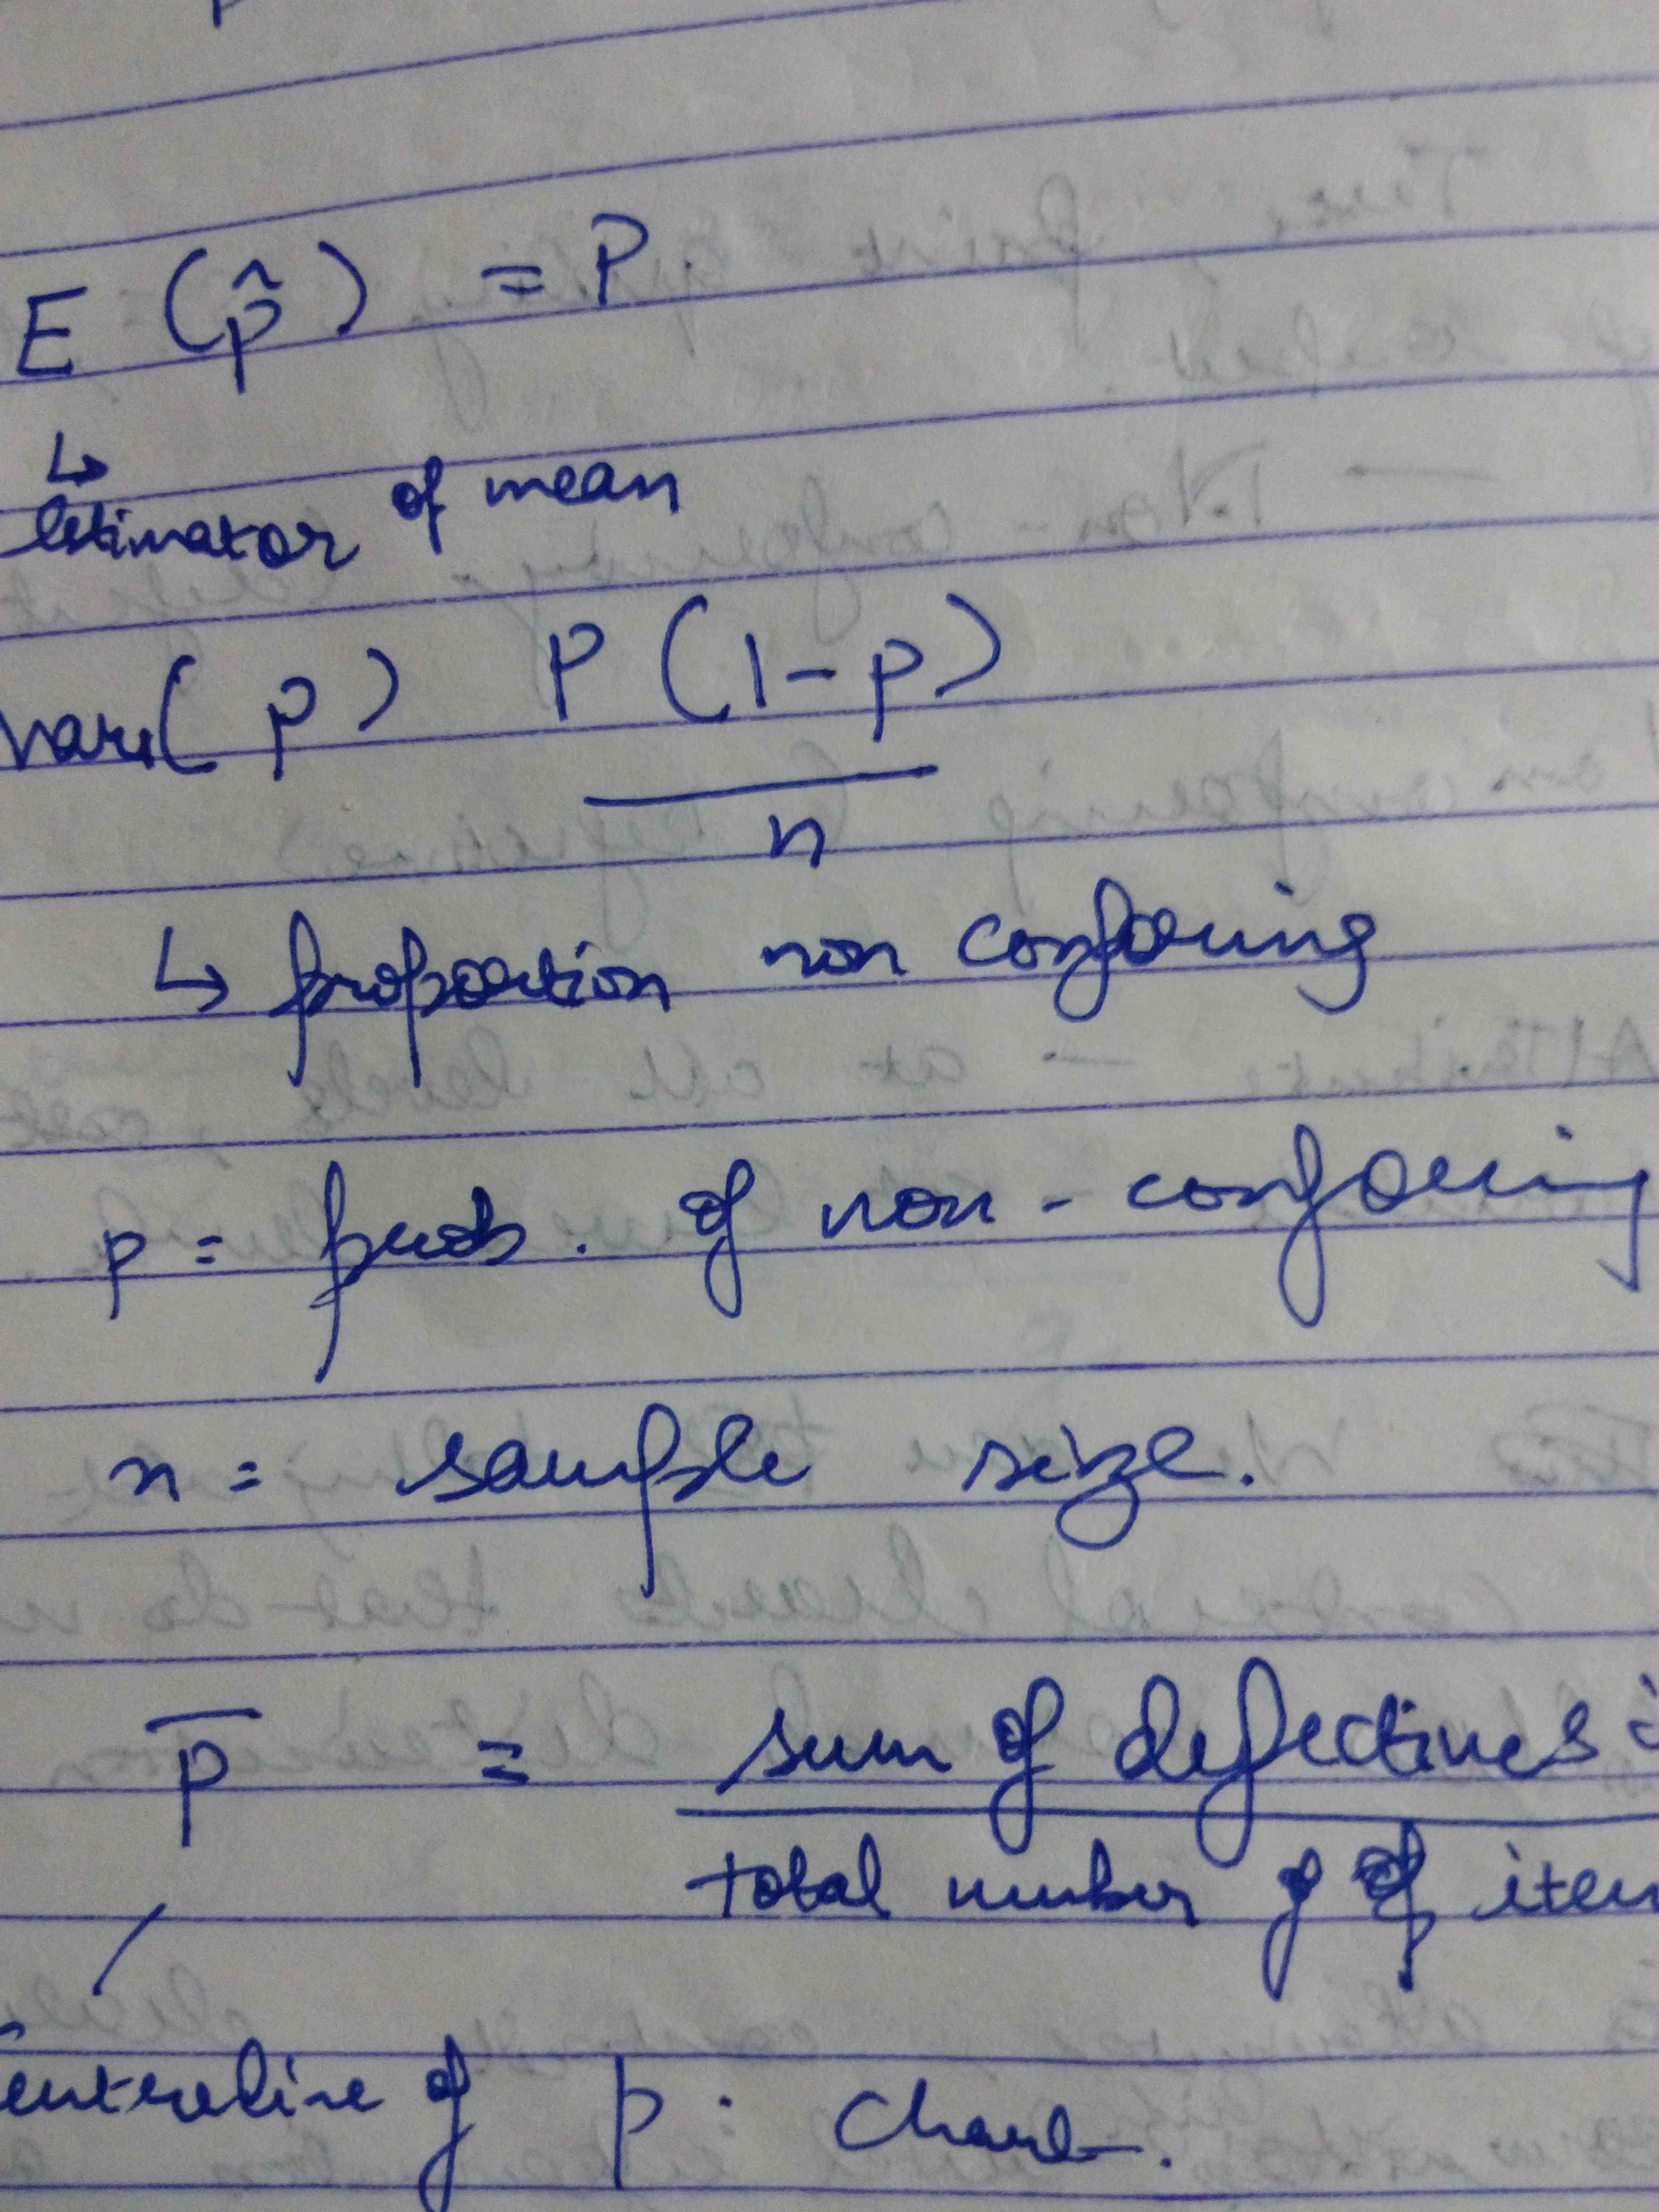 E (p̂) = P
↳
Estimator of mean
var( p ) P (1-p)
n
↳ proportion non conforming
p = prob. of non-conforming
n = sample size.
p̄ = sum of defectives
total number of of item
centreline of p. chart.